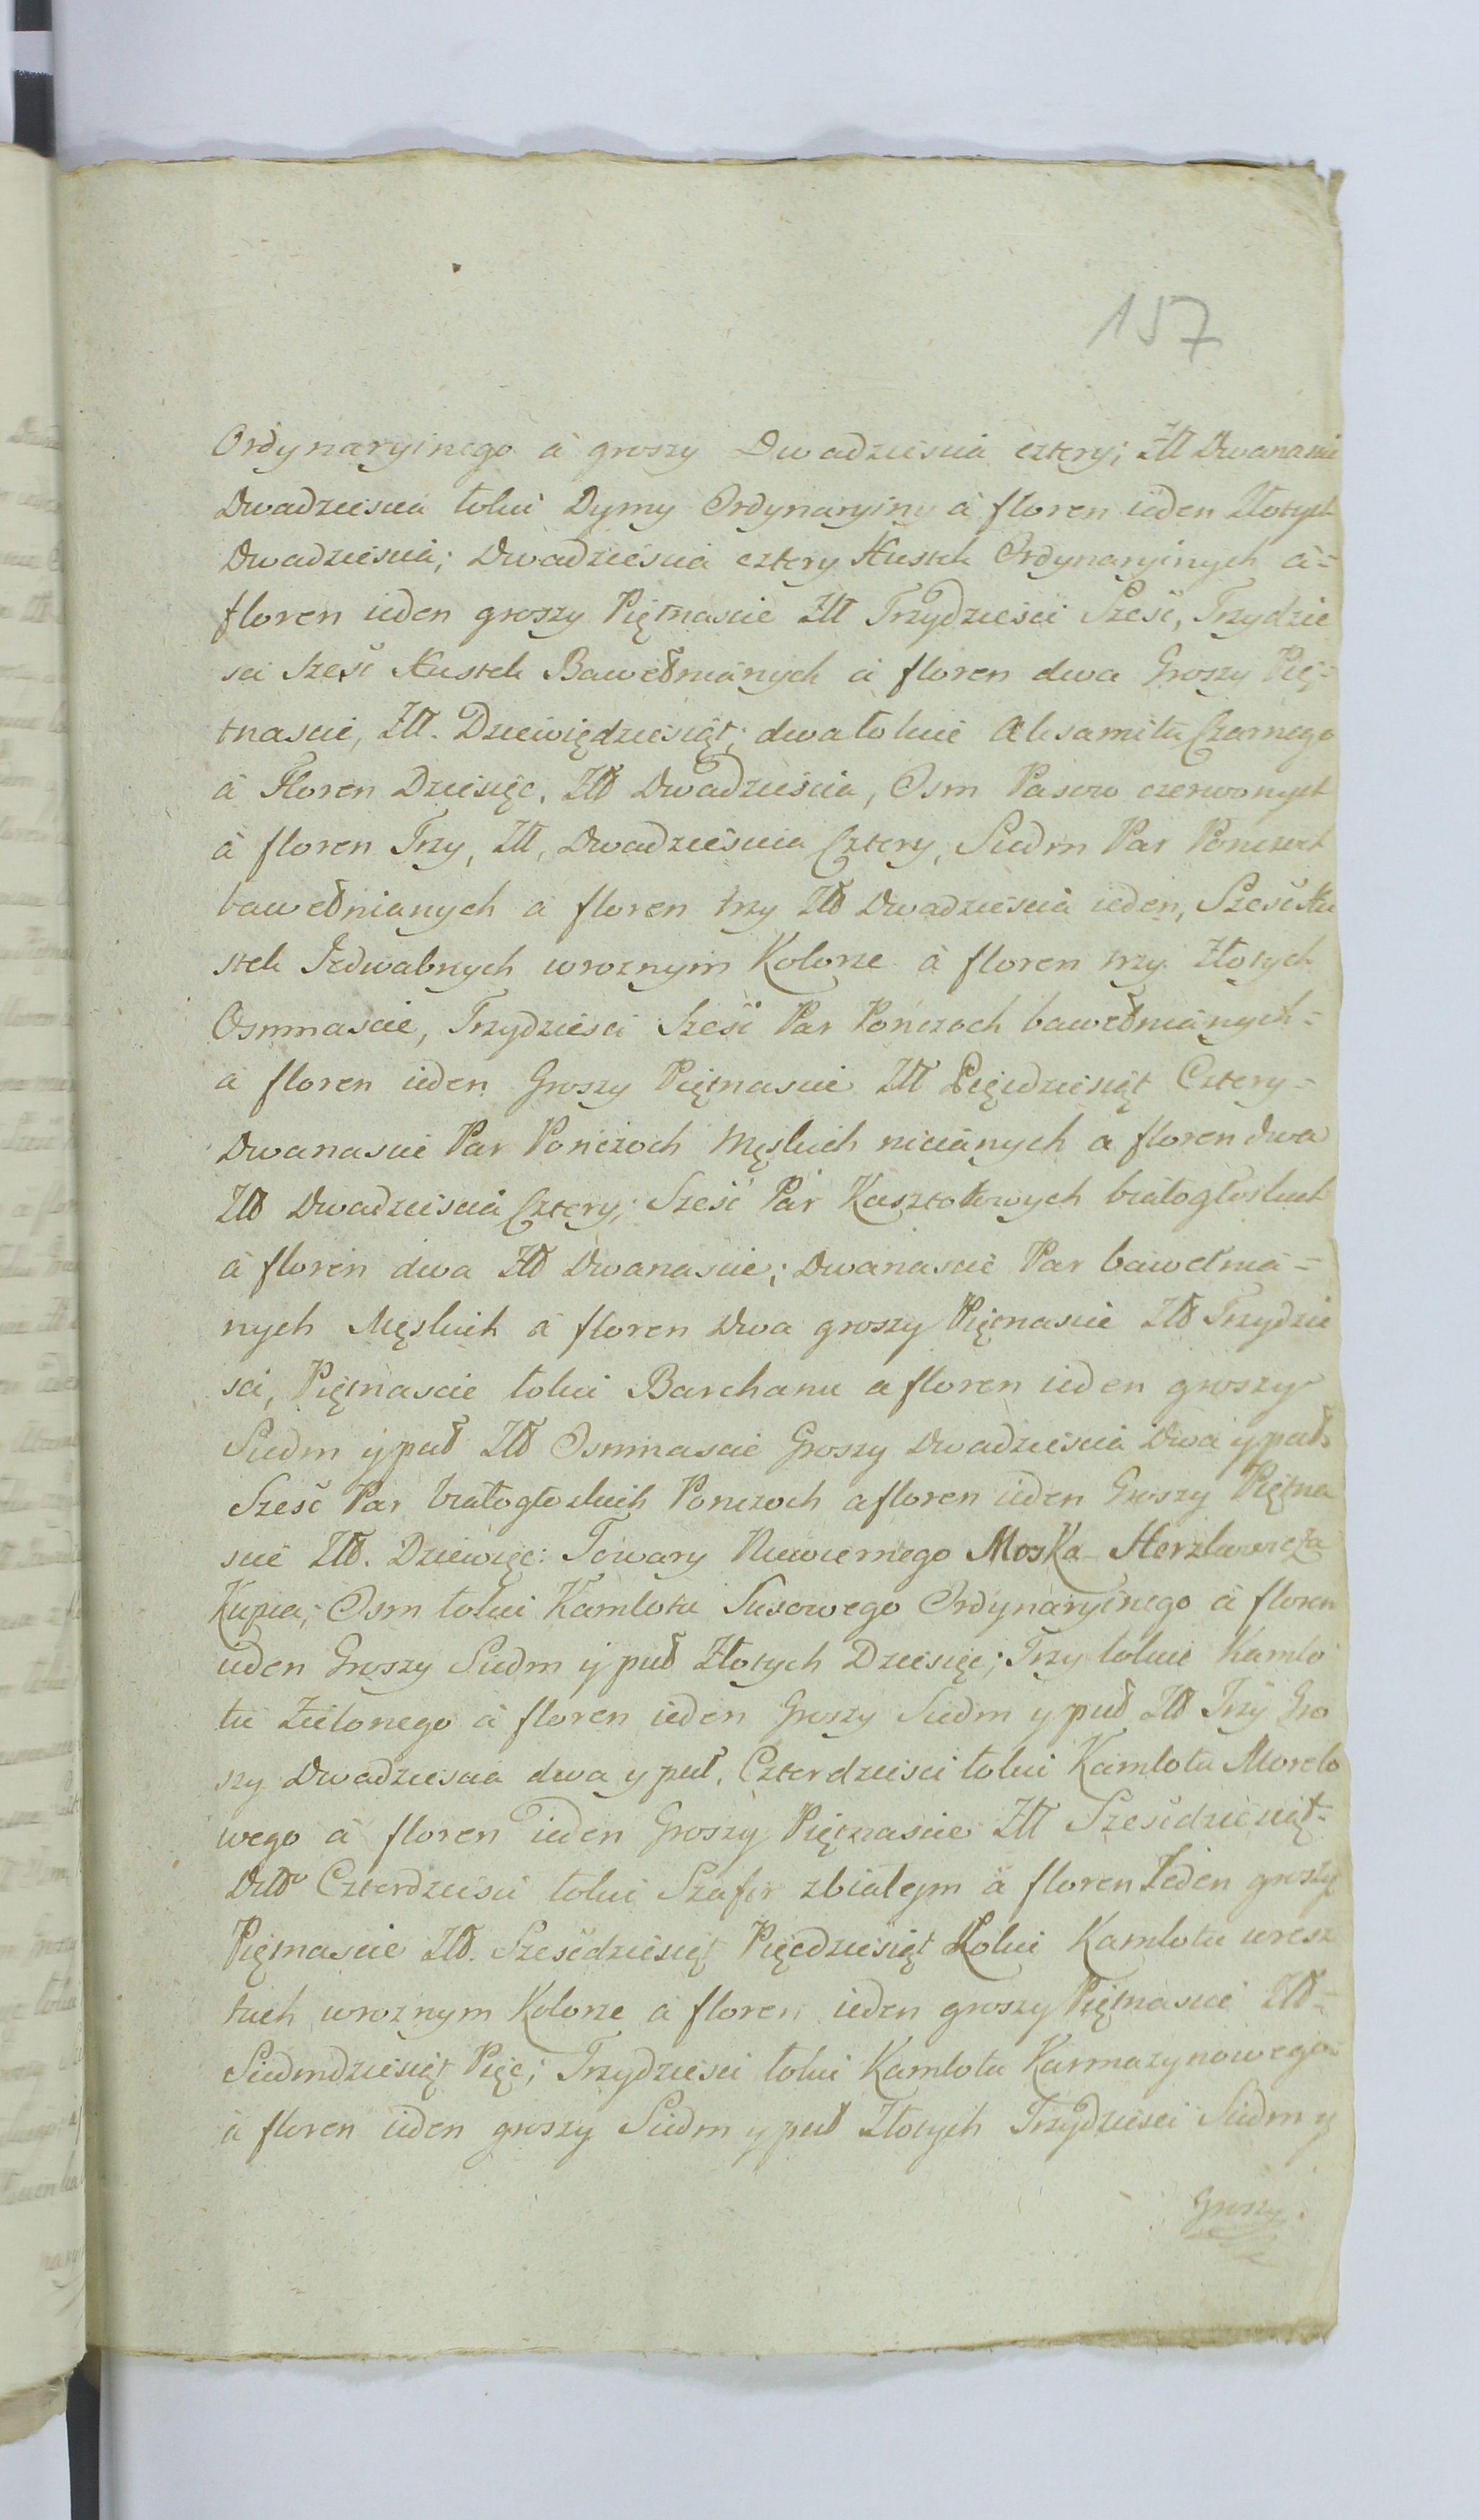 157
Ordynaryinego à groszy Dwadziescia cztery; Złł Dwanascie
Dwadziescia łokci Dymy Ordynaryiny à floren ieden Złotych
Dwadziescia; Dwadziescia cztery Hustek Ordynaryinych à=
floren ieden groszy Piętnascie Złł Trzydziesci Sześć, Trzydzie
sci sześć Hustek Bawełnianych à floren dwa Groszy Pię=
tnascie, Złł. Dziewiędziesiąt; dwa łokcie Aksamitu Czarnego
à Floren Dziesięc, Złł Dwadziescia, Osm Pasow czerwonych
à floren Trzy, Złł, Dwadziescia Cztery, Siedm Par Ponczoch
bawełnianych à floren trzy Złł Dwadziescia ieden, Sześć Hu
stek Iedwabnych wroznym Kolorze à floren trzy Złotych
Osmnascie, Trzydziesci Sześć Par Ponczoch bawełnianych=
à floren ieden Groszy Piętnascie Złł Pięćdziesiąt Cztery=
Dwanascie Par Ponczoch Męskich nicianych à floren dwa
Złł Dwadziescia Cztery; Sześć Par Kasztołowych białogłoskich
à floren dwa Złł Dwanascie; Dwanascie Par bawełnia=
nych Męskich à floren Dwa groszy Piętnascie Złł Trzydzie
sci, Piętnascie łokci Barchanu a floren ieden groszy
Siedm y puł Złł Osmnascie Groszy Dwadziescia Dwa y puł,
Sześć Par białogłoskich Ponczoch a floren ieden Groszy Piętna
scie Złł. Dziewięc: Towary Niewiernego Moska Herzkowicza
Kupca; Osm łokci Kamlotu Susowego Ordynaryinego à floren
ieden Groszy Siedm y puł Złotych Dziesięc; Trzy łokcie Kamlo
tu Zielonego à floren ieden Groszy Siedm y puł Złł Trzy Gro
szy Dwadziescia dwa y puł, Czterdziesci łokci Kamlotu Morelo
wego à floren ieden Groszy Piętnascie Złł Sześćdziesiąt=
Ditto Czterdziesci łokci Szafir zbiałym à floren Ieden groszy
Piętnascie Złł. Sześćdziesiąt Pięćdziesiąt Łokci Kamlotu wresz
tkach wroznym Kolorze a floren ieden groszy Piętnascie Złł=
Siedmdziesiąt Pięc; Trzydziesci łokci Kamlotu Karmazynowego
à floren ieden groszy Siedm y puł Złotych Trzydziesci Siedm y
Groszy